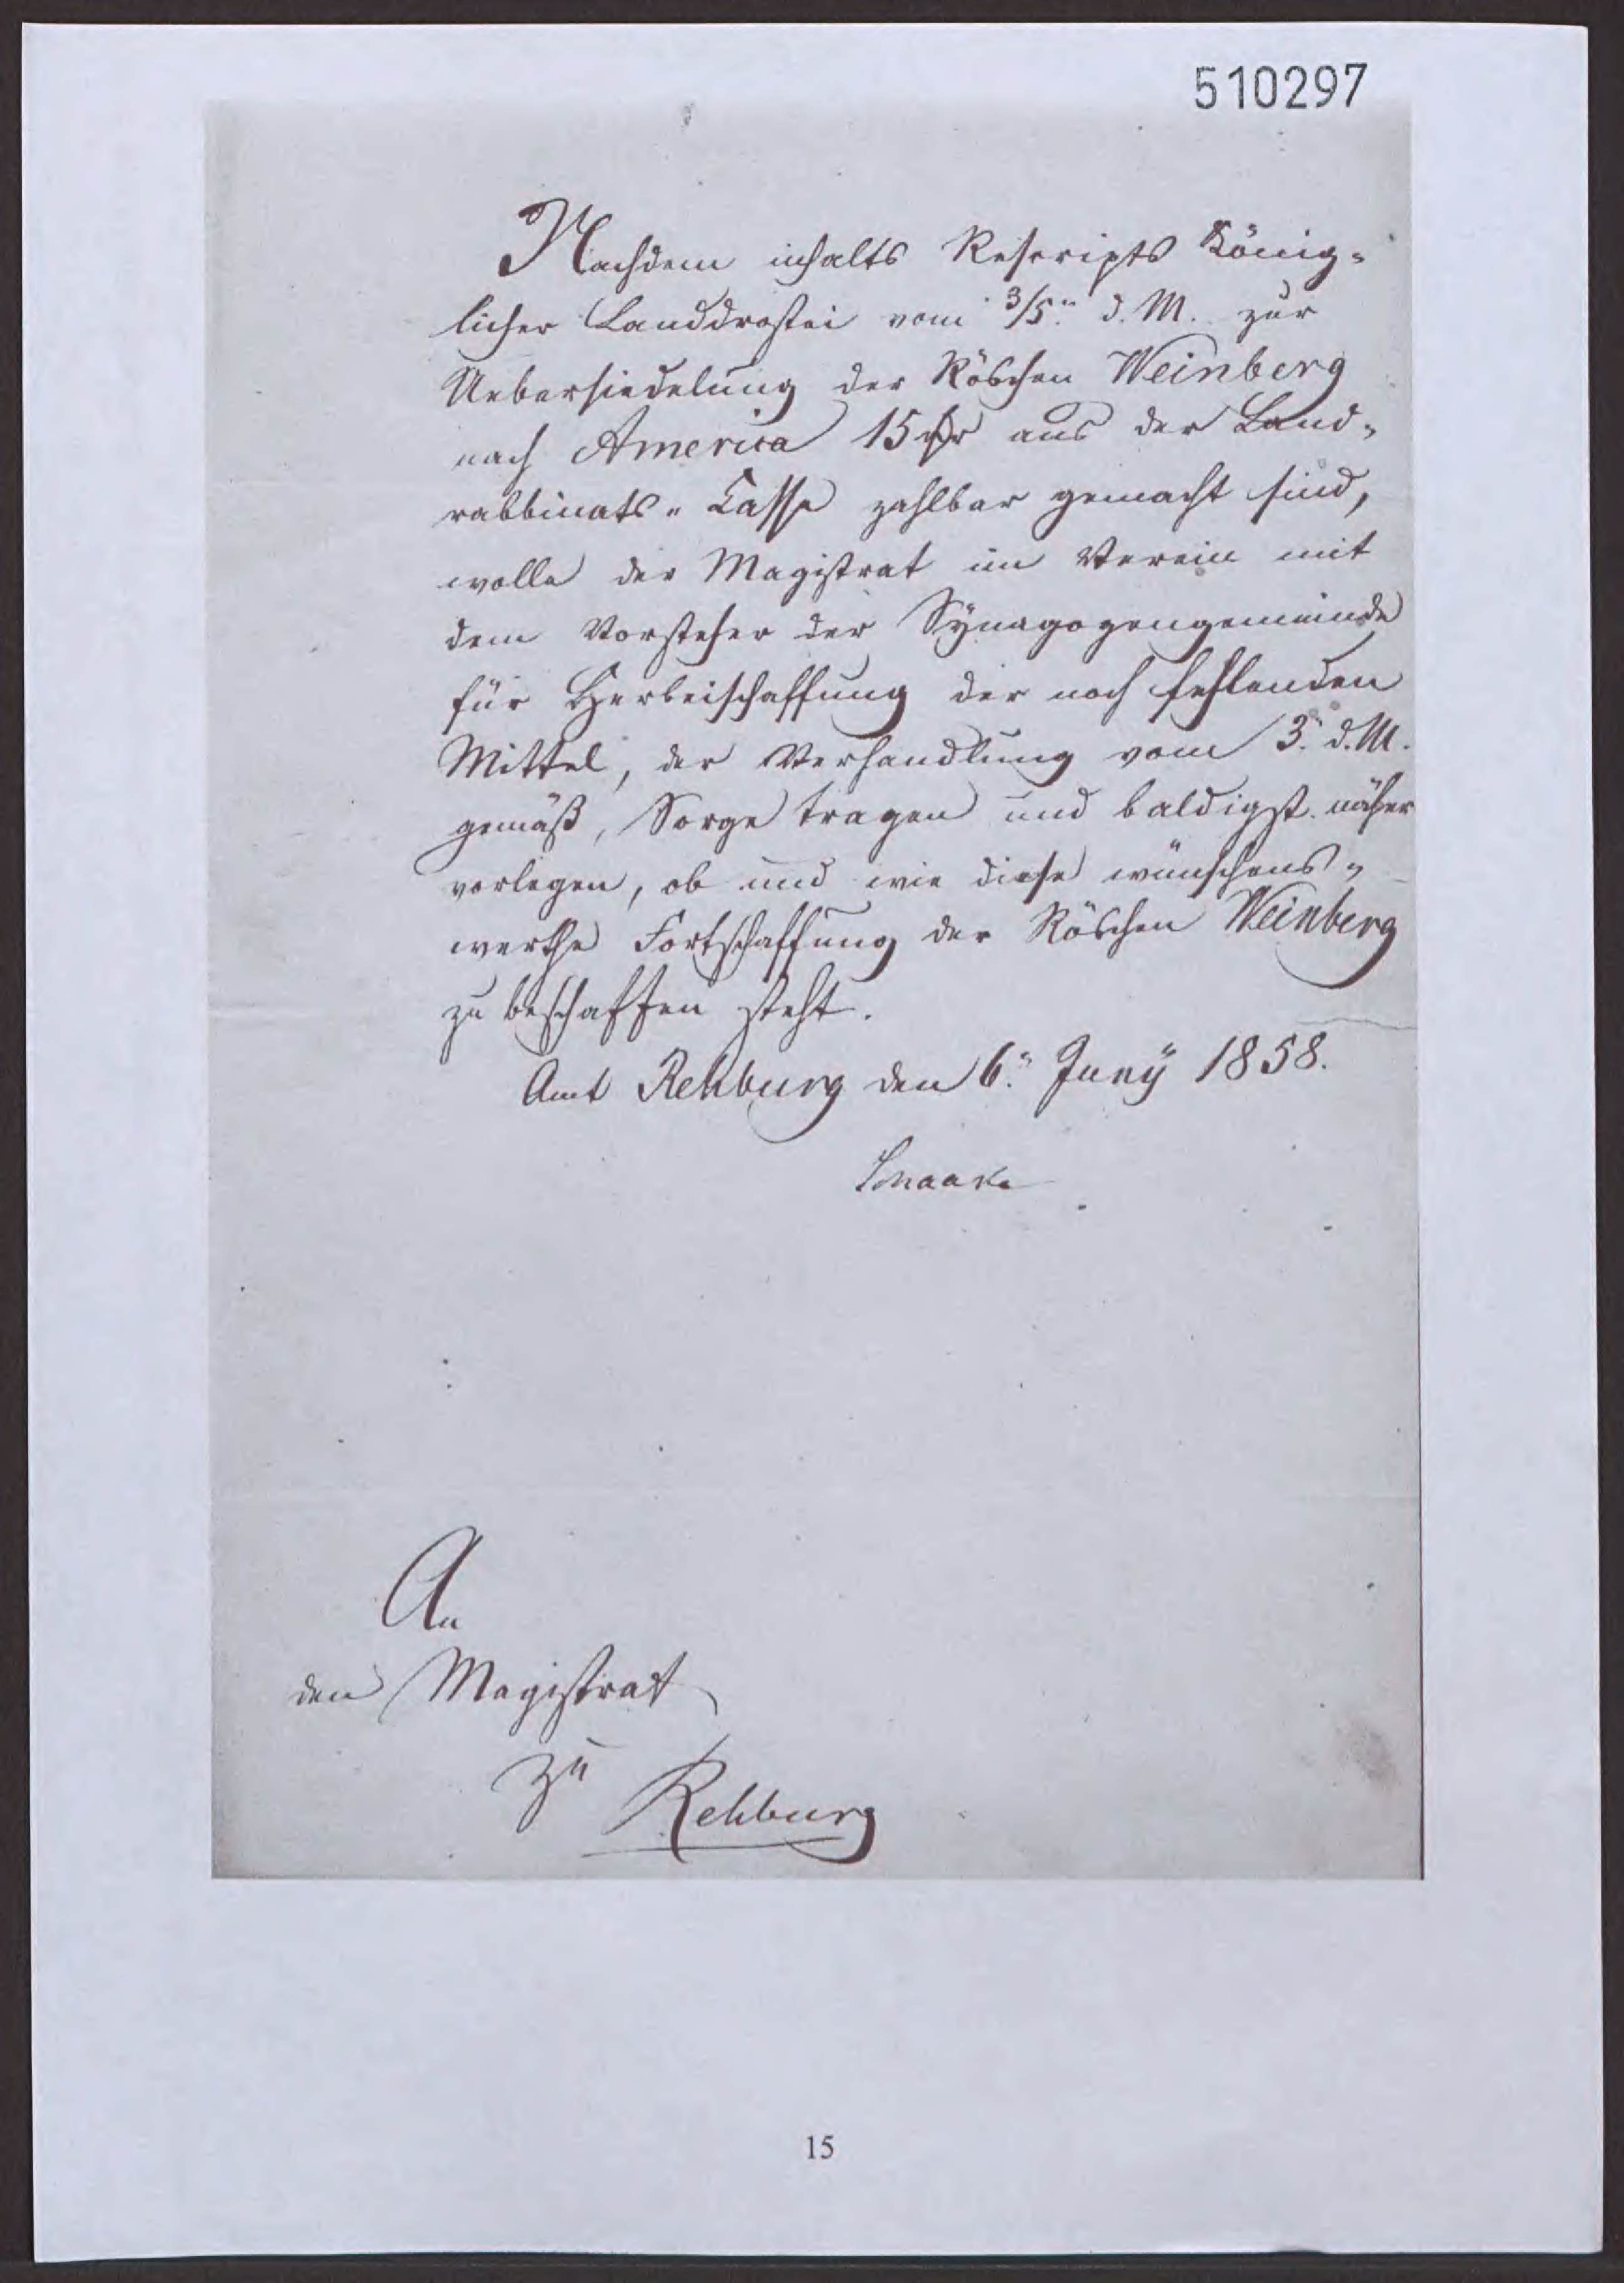 510297
Nachdem inhalts Rescripts König=
licher Landdrostei vom 3/5. d. M. zur
Uebersiedelung der Röschen Weinberg
nach America 15 rthlr aus der Land=
rabbinats=Casse zahlbar gemacht sind,
wolle der Magistrat im Verein mit
dem Vorsteher der Synagogengemeinde
für Herbeischaffung der noch fehlenden
Mittel, der Verhandlung vom 3. d. M.
gemäß, Sorge tragen und baldigst näher
vorlegen, ob und wie diese wünschens=
werthe Fortschaffung der Röschen Weinberg
zu beschaffen steht.
Amt Rehburg den 6. Juny 1858.
An
den Magistrat
zu
Rehburg
15